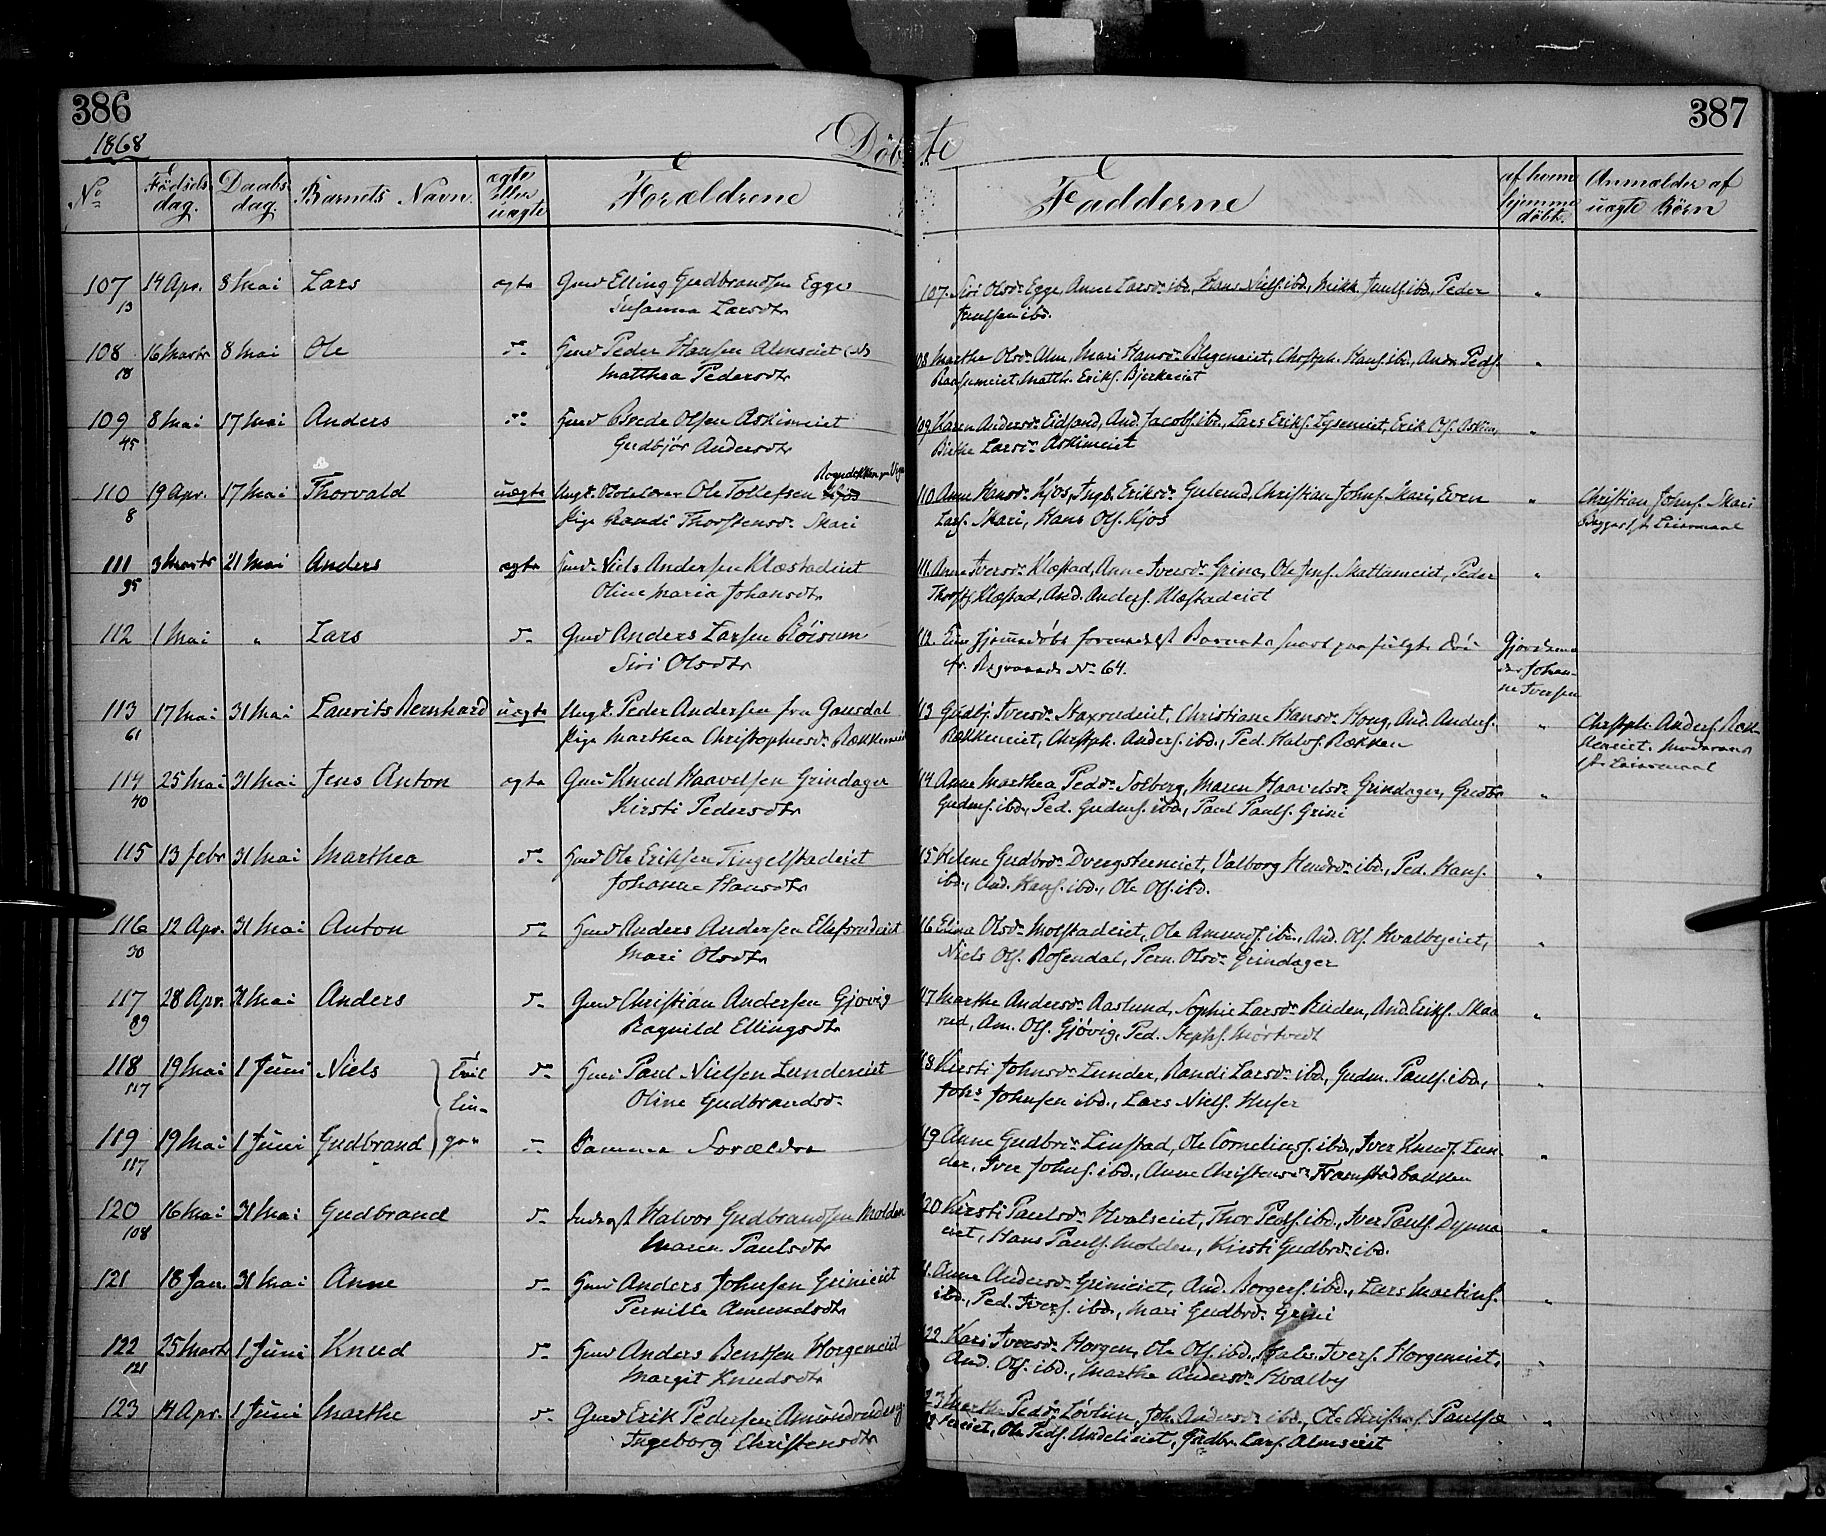 386
1868
Döbte
387
No
Födsels dag.
Daabs dag.
Barnets Navn.
ægte eller uægte
Forældrene
Fadderne
af hvem hjemme döbt.
Anmelder af uægte Börn
107 14 Apr. 8 Mai Lars ægte Gmd Elling Gudbrandsen Egge
13 Susanna Larsdtr
107. Siri Olsdr Egge, Anne Larsdr ibd, Hans Niels. ibd., Peder
ibd.
108 16 Marts 8 Mai Ole do Hmd Peder Hansen Almseiet
18 Matthea Pedersdtr
108 Marthe Olsdr Alm, Mari Hansdr, Chrstph. Hans. ibd., Andr. Peds.
Matth. Eriks. Bjerkeeiet
109 8 Mai 17 Mai Anders do Hmd Olsen Askimeiet
45 Gudbjör Andersdtr
109. Karen Andersdr Eidsand, And. Jacobs. ibd., Lars Eriks., Erik Ols. Askim,
Birthe Larsdr Askimeiet
110 19 Apr. 17 Mai Thorvald uægte Ungk. Ole Tollefsen Kjos
8 Pige Randi Thorstensdr Skari
110 Anne Hansdr Kjos, Ingb. Eriksdr, Christian Johns. Skari, Even
Lars. Skari, Hans Ols. Kjos
Christian Johns. Skari
Leiermaal
111 3 Marts 21 Mai Anders ægte Hmd Niels Andersen Klæstadeiet
95 Oline Maria Johansdtr
111 Anne Iversdr Klæstad, Anne Iversdr Grina, Ole Jens., Peder
Klæstad, And. Anders. Klæstadeiet
112 1 Mai " Lars do Gmd Anders Larsen
Siri Olsdtr
112. Barnets snart paafulgte Död
fr. No 64.
Johanne Iversen
113 17 Mai 31 Mai Laurits Bernhard uægte Ungk. Peder Andersen fra Gausdal
61 Pige Marthea Christophersdr Rækkeneiet
113 Gudbj. Iversdr, Christiane Hansdr Houg, And. Anders.
Rækkeneiet, Chrstph. Anders. ibd., Ped. Halvs. Rækken
Chrstph. Anders.
Leiermaal
114 25 Mai 31 Mai Jens Anton ægte Gmd Knud Haavelsen Grindager
40 Kirsti Pedersdtr
114 Anne Marthea Pedsdr Solberg, Maren Haavelsdr Grindager, Gudbr.
ibd., Ped. ibd., Paul Pauls. Grini
115 13 Febr 31 Mai Marthea do Hmd Ole Eriksen Tingelstadeiet
Johanne Hansdtr
115 Helene Gudbrdr, Valborg ibd., Ped. Hans.
ibd., And. Hans. ibd., Ole Ols. ibd.
116 12 Apr. 31 Mai Anton do Hmd Anders Andersen
30 Mari Olsdtr
116 Elina Olsdr Molstadeiet, Ole Amunds. ibd., And. Ols. Hvalbyeiet,
Niels Ols. Rosendal, Pern. Olsdr Grindager
117 28 Apr. 31 Mai Anders do Gmd Christian Andersen Gjövig
89 Ragnild Ellingsdtr
117 Marthe Andersdr Aaslund, Sophie Larsdr Ruden, And. Eriks. Skaa
rud, Am. Ols. Gjövig, Ped. Stephs. Mörtvedt
118 19 Mai 1 Juni Niels Tvil do Hmd Paul Nielsen Lundereiet
117 lin- Oline Gudbrandsdr
118 Kirsti Johnsdr Lunder, Randi Larsdr ibd., Gudm. Pauls. ibd.,
Johs Johnsen ibd., Lars Niels. Huser
119 19 Mai 1 Juni Gudbrand ger Samme Forældre
117
119 Anne Gudbrdr Linstad, Ole Cornelius. ibd., Iver Knuds. Lun-
der, Iver Johns. ibd., Anne Christensdr Framstadbakken
120 16 Mai 31 Mai Gudbrand do Inderst Halvor Gudbrandsen Molden
108 Maren Paulsdtr
120 Kirsti Paulsdr Hvalseiet, Thor Peds. ibd., Iver Pauls. Dynna
eiet, Hans Pauls. Molden, Kirsti Gudbrdr ibd.
121 18 Jan. 31 Mai Anne do Hmd Anders Johnsen Grinieiet
Pernille Amundsdtr
Anne Andersdr Grinieiet, And. Borgers. ibd., Lars Martins.
ibd., Ped. Ivers. ibd., Mari Gudbrdr Grini
122 25 Marts 1 Juni Knud do Hmd Anders Bentsen Horgeneiet
121 Margit Knudsdtr
122. Kari Iversdr Horgen, Ole Ols. ibd., Ivers. Horgeneiet,
And. Ols. ibd., Marthe Andersdr Hvalby
123 14 Apr. 1 Juni Marthe do Gmd Erik Pedersen
Ingeborg Christensdtr
Marthe Pedsdr Lövlien, Joh. Andersdr ibd., Ole Christens.
Ole Peds., Gudbr. Lars. Almseiet